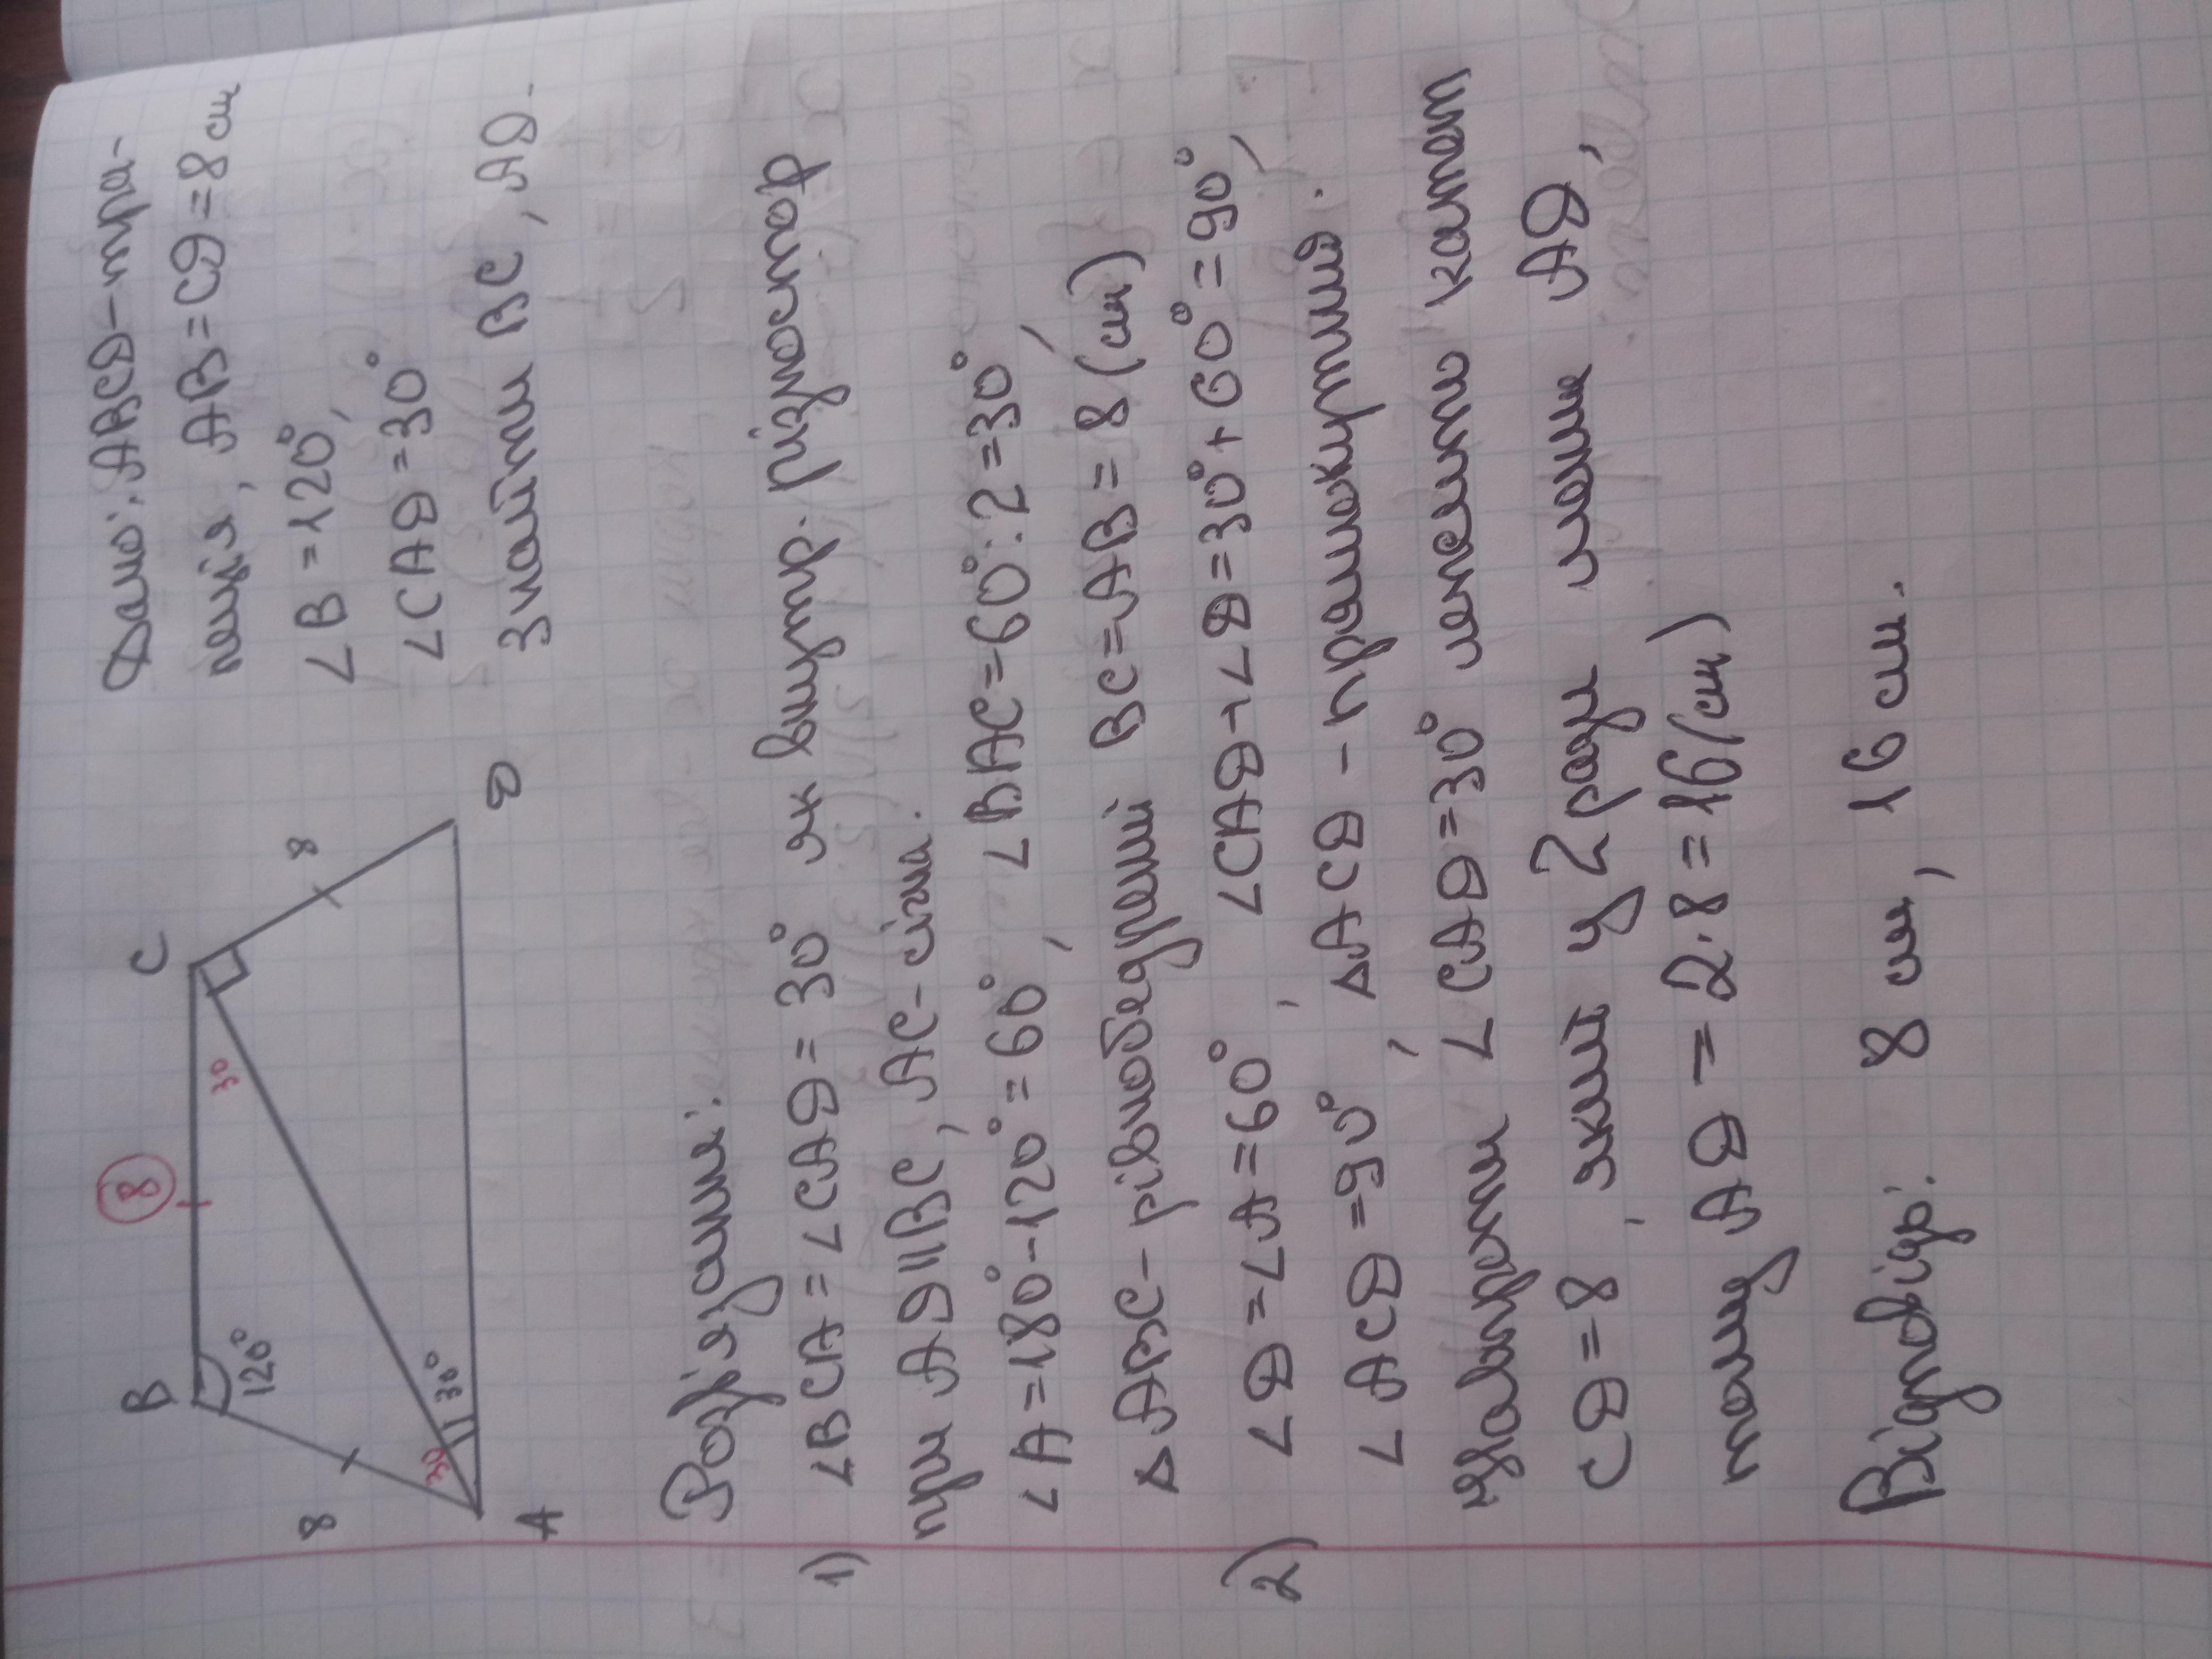 B
C
8
120°
30
8
8
30
30°
A
D
Дано: ABCD-тра-
пеція, AB=CD=8 см
∠B=120°,
∠CAD=30°
Знайти BC, AD.
Розв'язання:
1) ∠BCA=∠CAD=30° як внутр. різностор
при AD||BC, AC-січна.
∠A=180°-120°=60°, ∠BAC=60°:2=30°,
△ABC-рівнобедрений BC=AB=8(см)
2) ∠D=∠A=60°, ∠CAD+∠D=30°+60°=90°,
∠ACD=90°, △ACD - прямокутний.
навпроти ∠CAD=30° лежить катет
CD=8, тоді у 2 рази менше AD,
тому AD=2·8=16(см)
Відповідь: 8 см, 16 см.